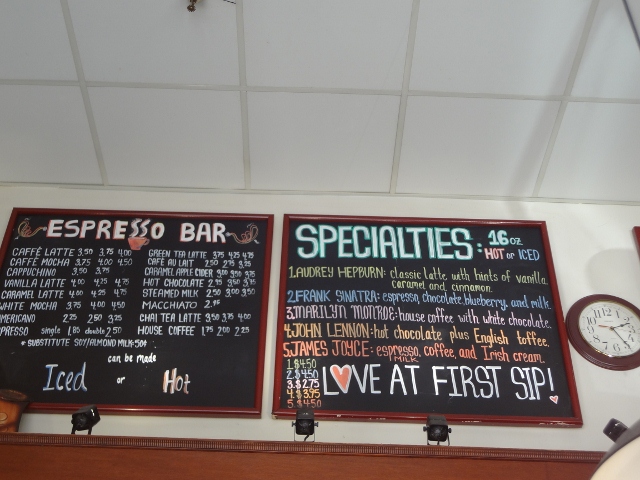 ESPRESSO BAR
CAFFÉ LATTE 3.50 3.75 4.00
CAFFÉ MOCHA 3.75 4.00 4.50
CAPPUCHINO 3.50 3.75
VANILLA LATTE 4.00 4.25 4.75
CARAMEL LATTE 4.00 4.25 4.75
WHITE MOCHA 3.75 4.00
AMERICANO 2.25 2.50 3.25
single 1.85 double 2.50
* SUBSTITUTE SOY/ALMOND MILK .50¢
GREEN TEA LATTE 3.75 4.25 4.75
CAFÉ AU LAIT 2.50 2.75 3.25
CARAMEL APPLE CIDER 3.00 3.50 3.75
HOT CHOCOLATE 2.95 3.50
STEAMED MILK 2.50 3.00 3.50
MACCHIATO
CHAI TEA LATTE 3.50 3.75 4.00
HOUSE COFFEE 1.75 2.00 2.25
can be made
Iced or Hot
SPECIALTIES: 16oz
HOT or ICED
1.AUDREY HEPBURN: classic latte with hints of vanilla,
caramel and cinnamon.
2.FRANK SINATRA: espresso, chocolate, blueberry, and milk.
3.MARILYN MONROE: house coffee with white chocolate.
4.JOHN LENNON: hot chocolate plus English toffee.
5.JAMES JOYCE: espresso, coffee, and Irish cream.
MILK
1.$4.50
2.$4.50
3.$2.75
4.$3.95
5.$4.50
LOVE AT FIRST SIP!